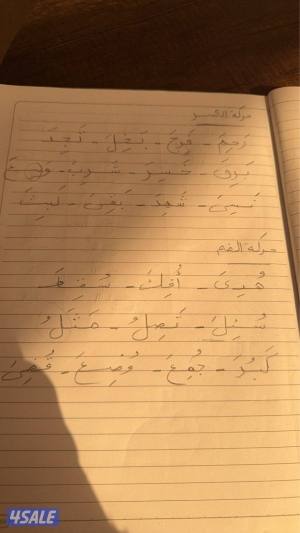 حركة الكسر
رَحِمَ - فَرِحَ - بَخِلَ - تَجِدَ
بَرِقَ - خَسِرَ - شَرِبَ
نَسِيَ - شَهِدَ - بَقِيَ - لَبِثَ
حركة الضم
هُدِيَ - أُفِكَ - سُقِطَ
سُئِلَ - تَصِلُ - مَثَلُ
كَبُرَ - جُمِعَ - وُضِعَ - قُضِيَ
4SALE